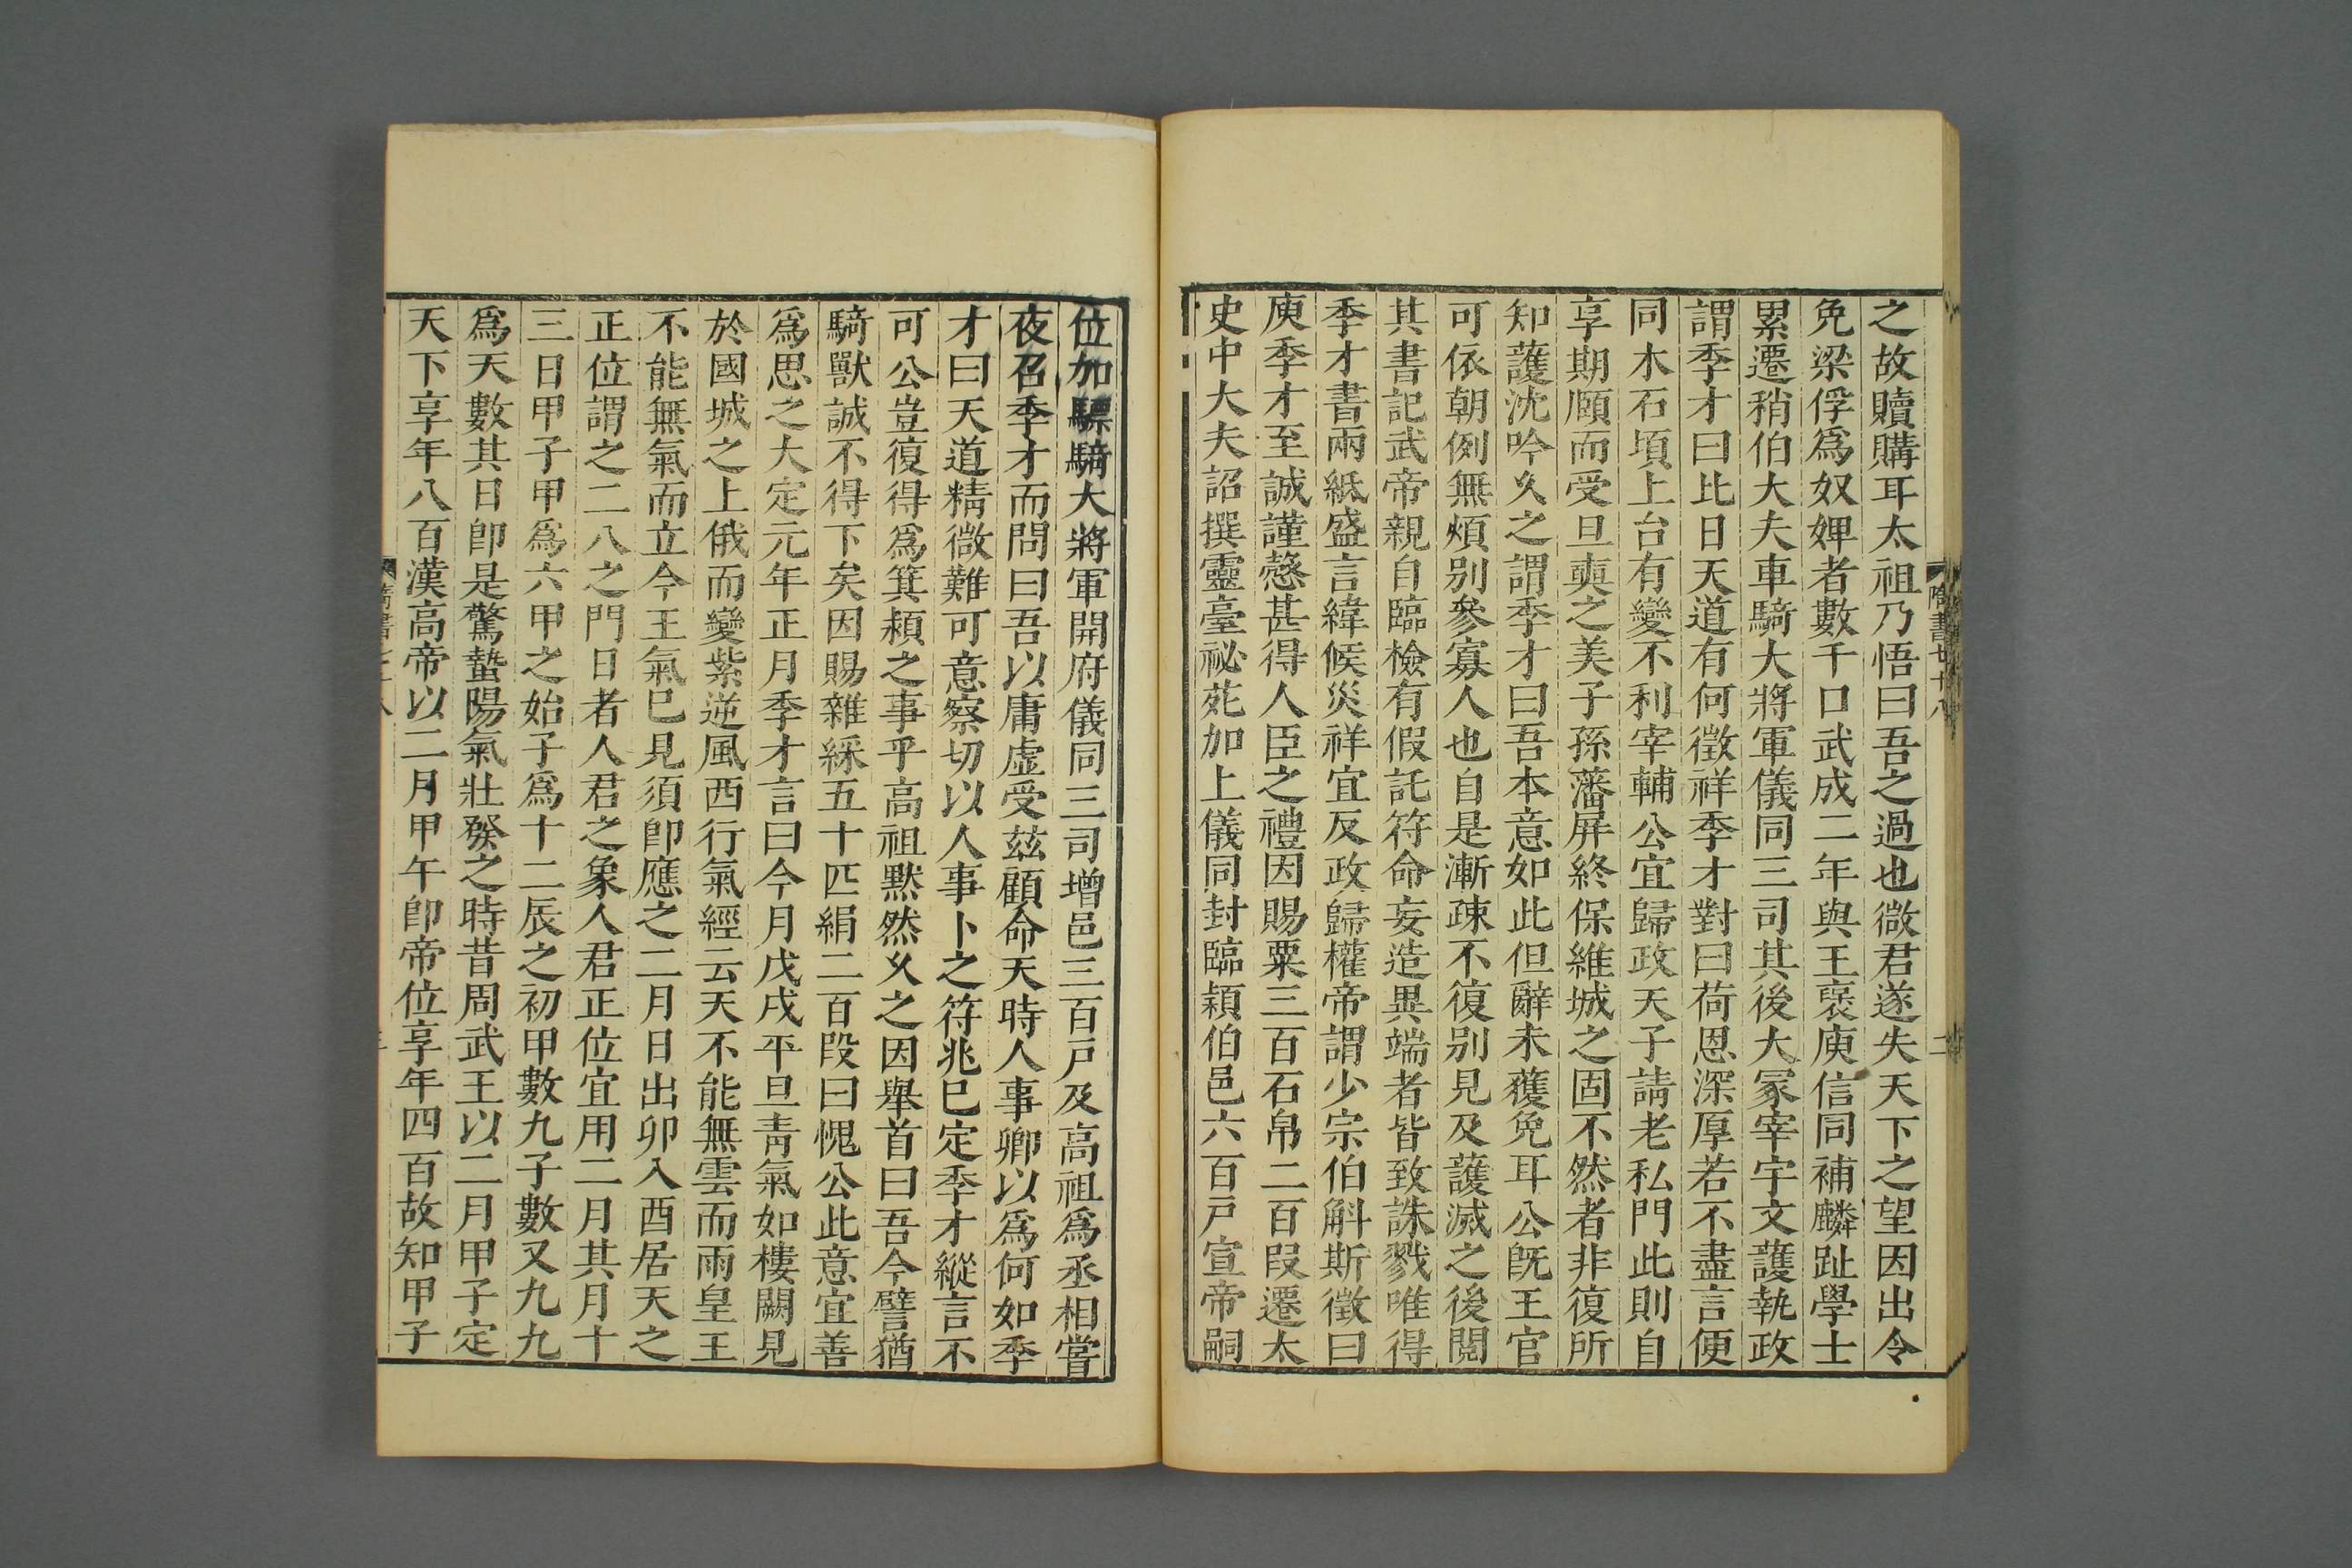 之故贖購耳太祖乃悟曰吾之過也微君遂失天下之望因出令
免梁俘爲奴婢者數千口武成二年與王襃庾信同補麟趾學士
累遷稍伯大夫車騎大將軍儀同三司其後大冢宰宇文護執政
謂季才曰比日天道有何徵祥季才對曰荷恩深厚若不盡言便
同木石頃上台有變不利宰輔公宜歸政天子請老私門此則自
享期頤而受旦奭之美子孫藩屏終保維城之固不然者非復所
知護沈吟久之謂季才曰吾本意如此但辭未獲免耳公旣王官
可依朝例無煩別參寡人也自是漸疎不復別見及護滅之後閱
其書記武帝親自臨檢有假託符命妄造異端者皆致誅戮唯得
季才書兩紙盛言緯候災祥宜反政歸權帝謂少宗伯斛斯徵曰
庾季才至誠謹慤甚得人臣之禮因賜粟三百石帛二百段遷太
史中大夫詔撰靈臺祕苑加上儀同封臨潁伯邑六百戸宣帝嗣
隋書七十八
二
位加驃騎大將軍開府儀同三司增邑三百戸及高祖爲丞相嘗
夜召季才而問曰吾以庸虛受茲顧命天時人事卿以爲何如季
才曰天道精微難可意察切以人事卜之符兆已定季才縱言不
可公豈復得爲箕潁之事乎高祖默然久之因舉首曰吾今譬猶
騎獸誠不得下矣因賜雜綵五十匹絹二百段曰愧公此意宜善
爲思之大定元年正月季才言曰今月戊戌平旦靑氣如樓闕見
於國城之上俄而變紫逆風西行氣經云天不能無雲而雨皇王
不能無氣而立今王氣已見須卽應之二月日出卯入酉居天之
正位謂之二八之門日者人君之象人君正位宜用二月其月十
三日甲子甲爲六甲之始子爲十二辰之初甲數九子數又九九
爲天數其日卽是驚蟄陽氣壯發之時昔周武王以二月甲子定
天下享年八百漢高帝以二月甲午卽帝位享年四百故知甲子